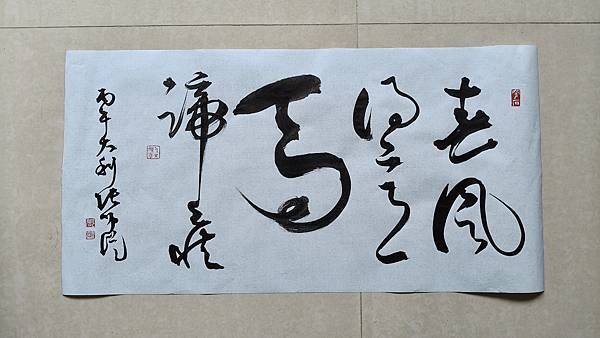 春風
得意
馬
蹄疾
丙午大利